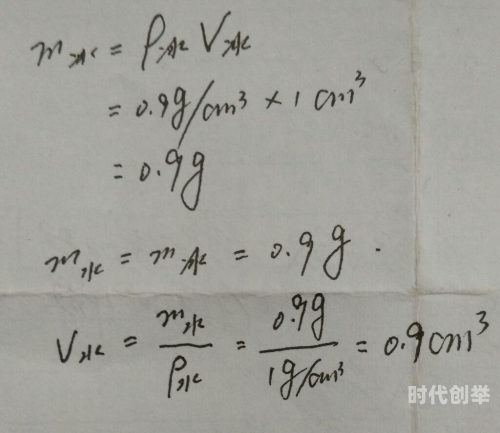 m冰 = ρ冰 V冰
= 0.9g/cm³ × 1 cm³
= 0.9g
m水 = m冰 = 0.9g.
V水 = m水/ρ水 = 0.9g/1g/cm³ = 0.9cm³
时代创举